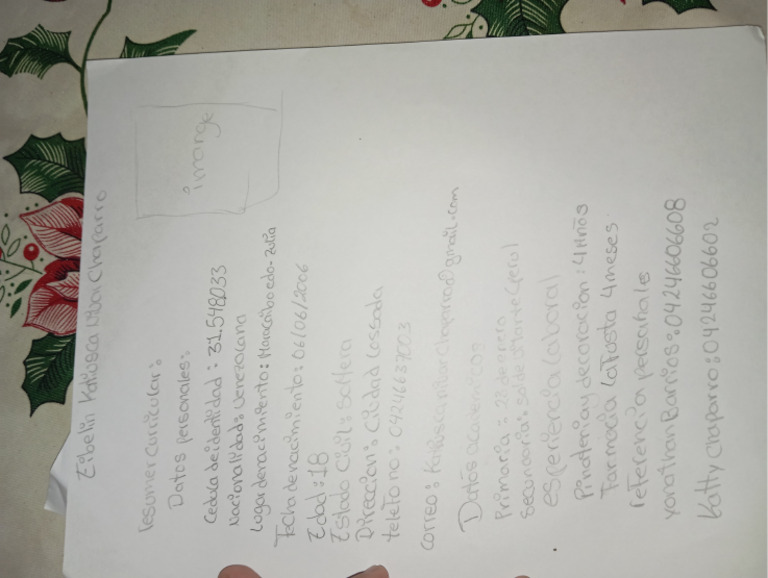 Zibelin Katiusca Chaparro
imange
resumer curricular:
Datos personales:
Cedula de identidad: 31.548033
Nacionalidad: Venezolana
Lugar de nacimiento: Maracaibo edo-Zulia
Fecha de nacimiento: 06/06/2006
Edad: 18
Estado Civil: Soltera
Direccion: Ciudad Lossada
telefono: 04246637003
correo:
Datos academicos
Primaria: 23 de enero
secundaria:
esperiencia laboral
Pinateria y decoracion: 4 años
Farmacia La Justa 4 meses.
referencia personale
yonathan Barrios: 04246606608
Katty Chaparro: 04246606602